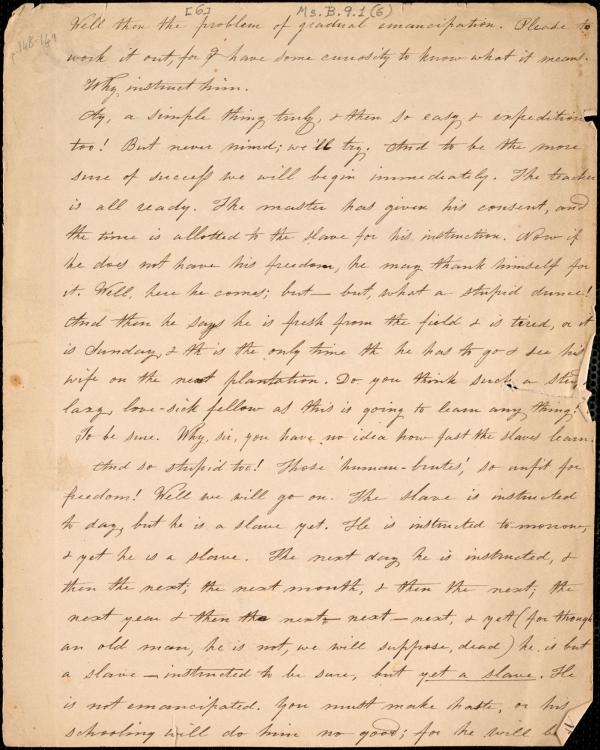 [6] Ms. B. 9.1 (6)
p. 148-149
Well then the problem of gradual emancipation. Please to
work it out, for I have some curiosity to know what it means.
Why, instruct him.
Ay, a simple thing truly, & then so easy & expeditious
too! But never mind; we'll try. And to be the more
sure of success we will begin immediately. The teacher
is all ready. The master has given his consent, and
the time is allotted to the slave for his instruction. Now if
he does not have his freedom, he may thank himself for
it. Well, here he comes; but — but, what a stupid dunce!
And then he says he is fresh from the field & is tired, or it
is Sunday, & th is the only time th he has to go & see his
wife on the next plantation. Do you think such a
lazy, love-sick fellow as this is going to learn any thing?
To be sure. Why, sir, you have no idea how fast the slaves learn.
And so stupid too! Those 'human-brutes', so unfit for
freedom! Well we will go on. The slave is instructed
to day, but he is a slave yet. He is instructed to-morrow,
& yet he is a slave. The next day he is instructed, &
then the next; the next month, & then the next; the
next year & then the next — next — next, & yet (for though
an old man, he is not, we will suppose, dead) he is but
a slave — instructed to be sure, but yet a slave. He
is not emancipated. You must make haste, or his
schooling will do him no good; for he will be